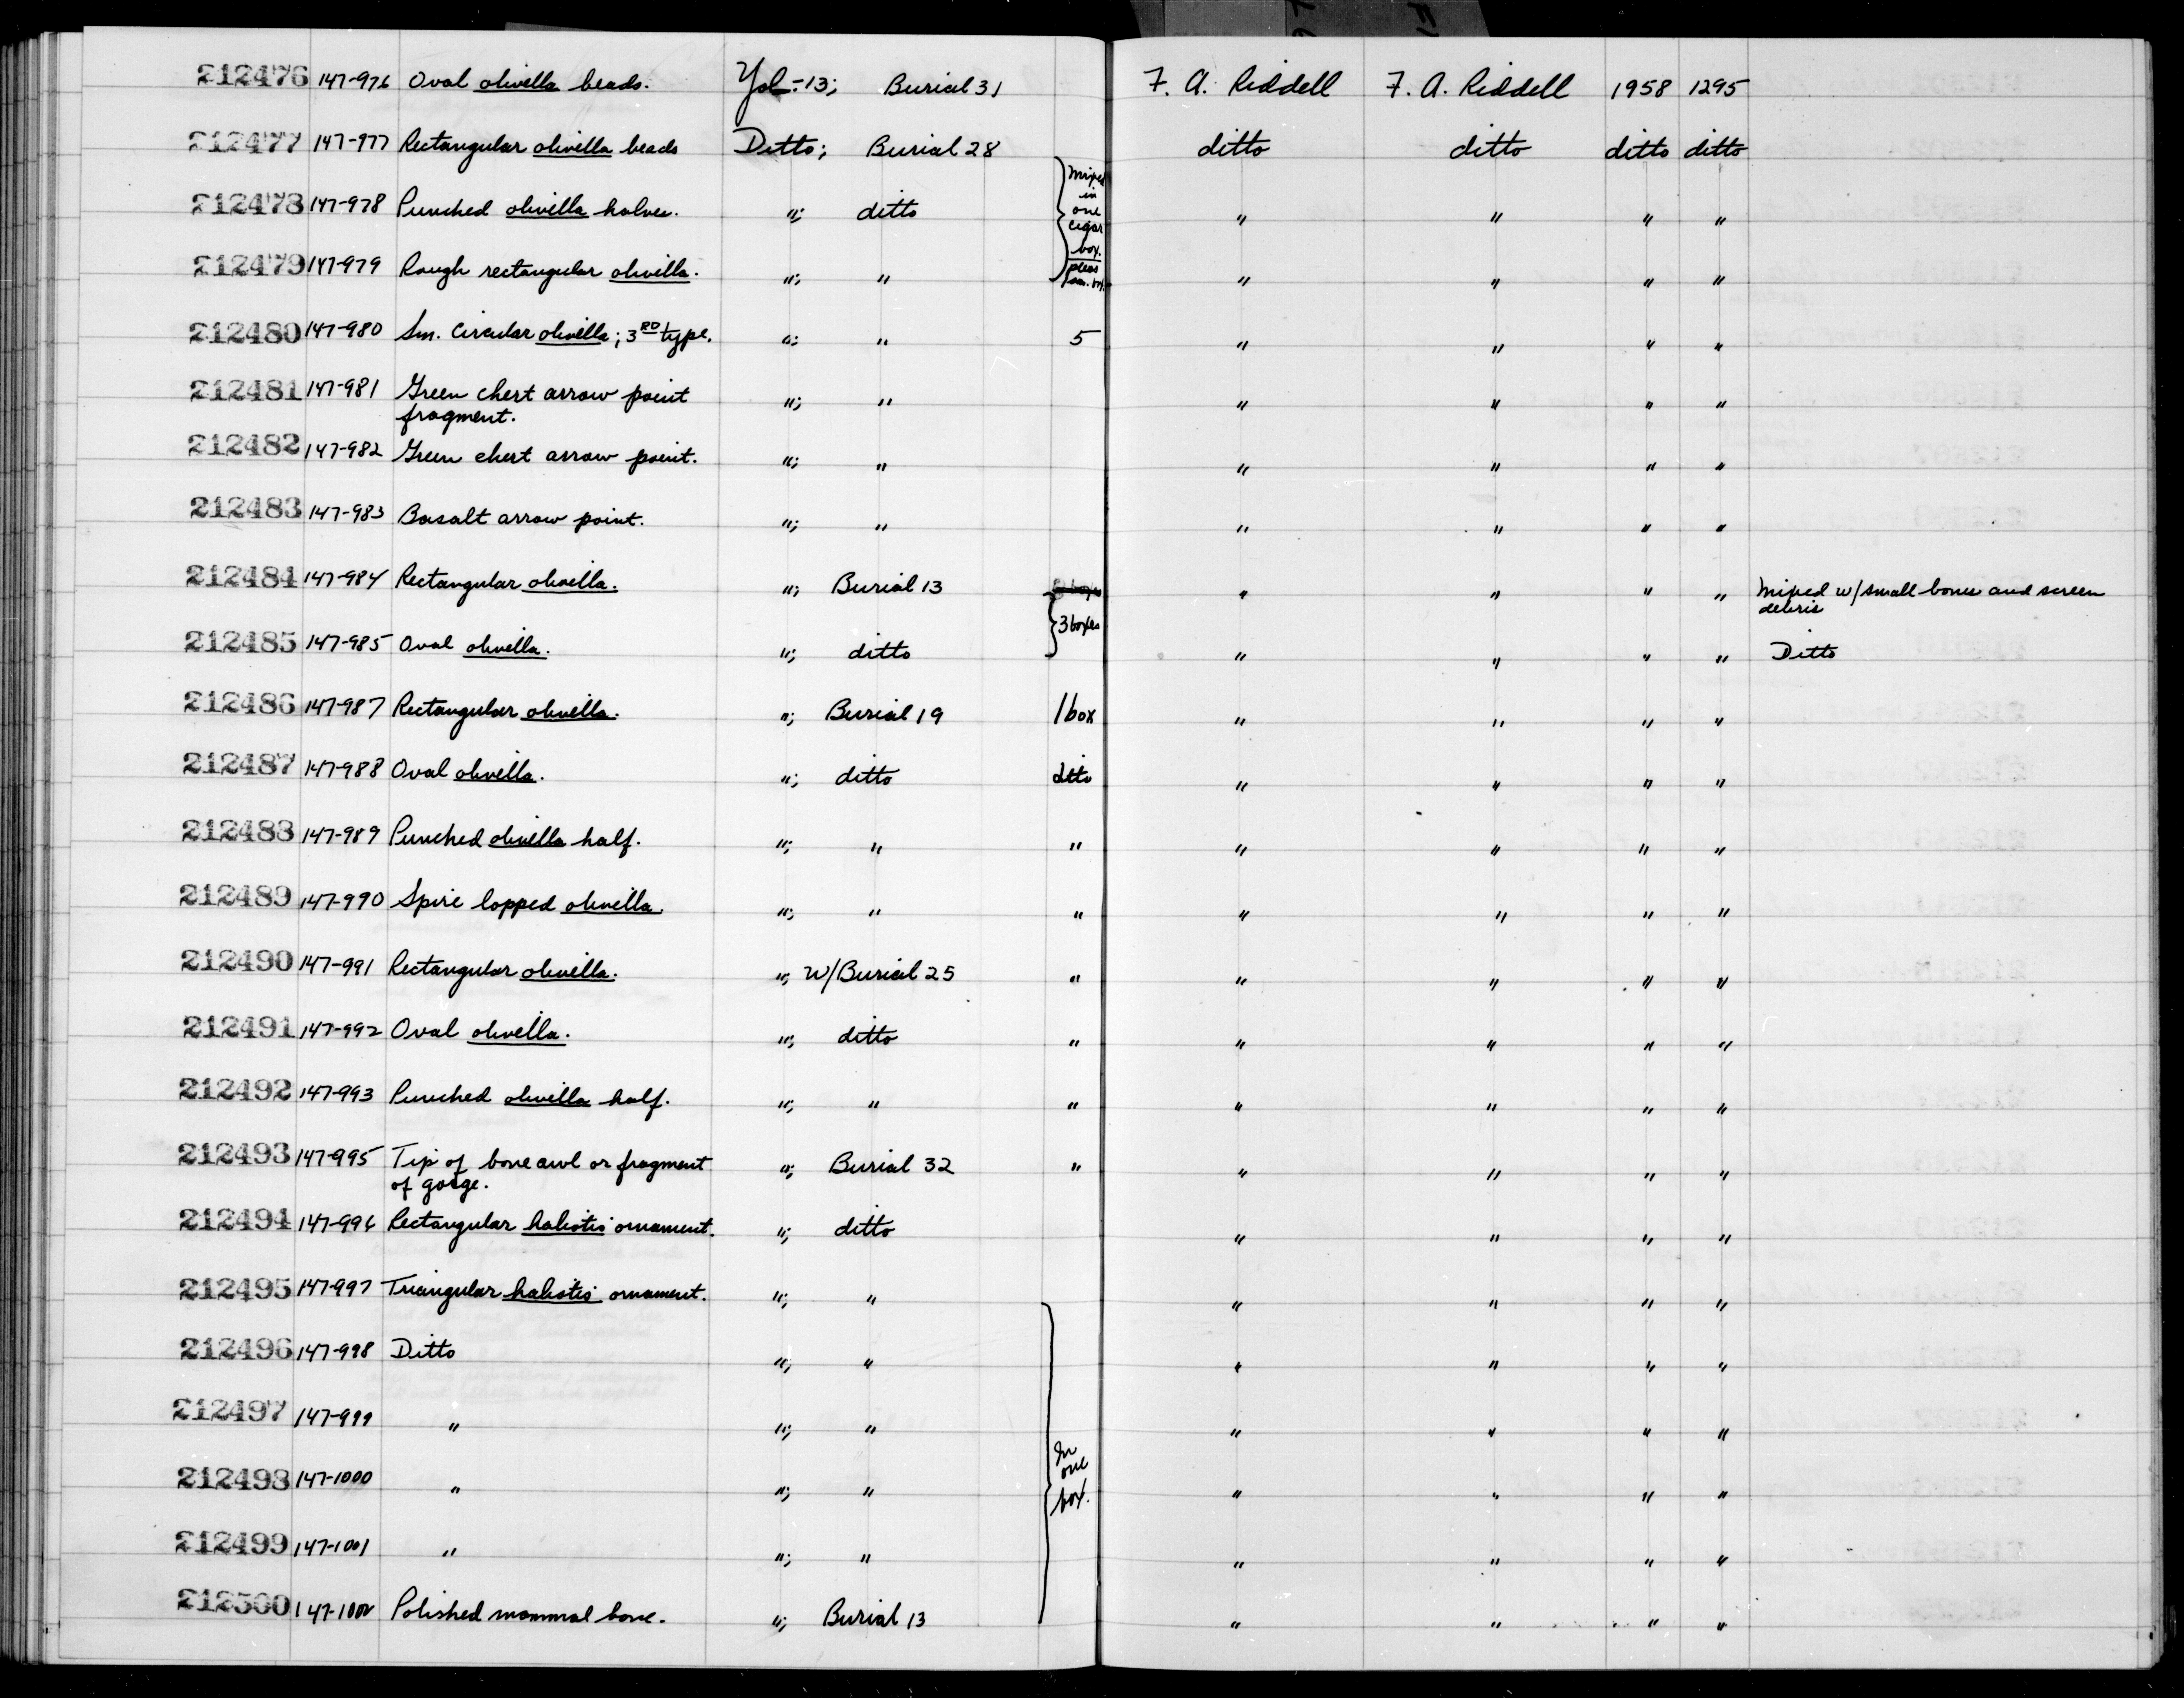 212476 147-976 Oval olivella beads. Yol-13; Burial 31 F. A. Riddell F. A. Riddell 1958 1295
212477 147-977 Rectangular olivella beads Ditto; Burial 28 ditto ditto ditto ditto
212478 147-978 Punched olivella halves. "; ditto mixed in one cigar box. " " " "
212479 147-979 Rough rectangular olivella. "; " " " " "
212480 147-980 Sm. circular olivella; 3RD type. "; " 5 " " " "
212481 147-981 Green chert arrow point "; " " " " "
fragment.
212482 147-982 Green chert arrow point. "; " " " " "
212483 147-983 Basalt arrow point. "; " " " " "
212484 147-984 Rectangular olivella. "; Burial 13 " " " " Mixed w/small bones and screen
debris
212485 147-985 Oval olivella. "; ditto 3 boxes " " " " Ditto
212486 147-987 Rectangular olivella. "; Burial 19 1 box " " " "
212487 147-988 Oval olivella. "; ditto ditto " " " "
212488 147-989 Punched olivella half. "; " " " " " "
212489 147-990 Spire lopped olivella. "; " " " " " "
212490 147-991 Rectangular olivella. "; w/Burial 25 " " " " "
212491 147-992 Oval olivella. "; ditto " " " " "
212492 147-993 Punched olivella half. "; " " " " " "
212493 147-995 Tip of bone awl or fragment "; Burial 32 " " " " "
of gorge.
212494 147-996 Rectangular haliotis ornament. "; ditto " " " "
212495 147-997 Triangular haliotis ornament. "; " " " " "
212496 147-998 Ditto "; " " " " "
212497 147-999 " "; " " " " "
212498 147-1000 " "; " In one box. " " " "
212499 147-1001 " "; " " " " "
212500 147-1002 Polished mammal bone. "; Burial 13 " " " "